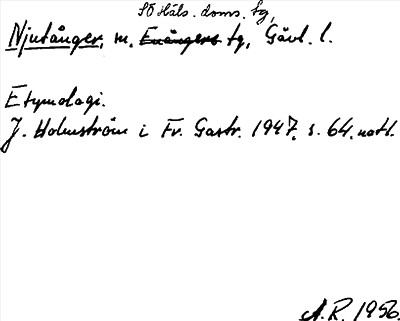 SÖ Häls. doms. tg,
Njutånger, sn, Enångers tg, Gävl. l.
Etymologi.
J. Holmström i Fr. Gastr. 1947, s. 64. not 1.
A. R. 1956.